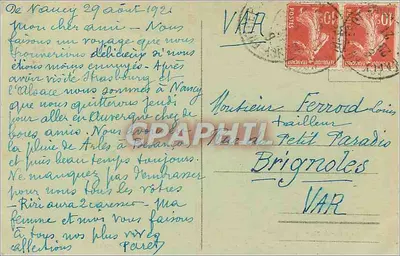 De Nancy 29 août 192
Mon cher ami - Nous
faisons un voyage que nous
trouverions délicieux si nous
étions moins ennuyés - Après
avoir visité Strasbourg et
l'Alsace nous sommes à Nancy
que nous quitterons jeudi
pour aller en Auvergne chez de
bons amis. Nous
la pluie de Arles à
et puis beau temps toujours.
Ne manquez pas d'embrasser
pour nous tous les vôtres
- Riri aura 2 caresses - Ma
femme et moi vous faisons
à tous nos plus vives
Paret
VAR
Monsieur Ferroid Louis
tailleur
Rue du Petit Paradis
Brignoles
VAR
POSTES
10
10
CPAPHIL